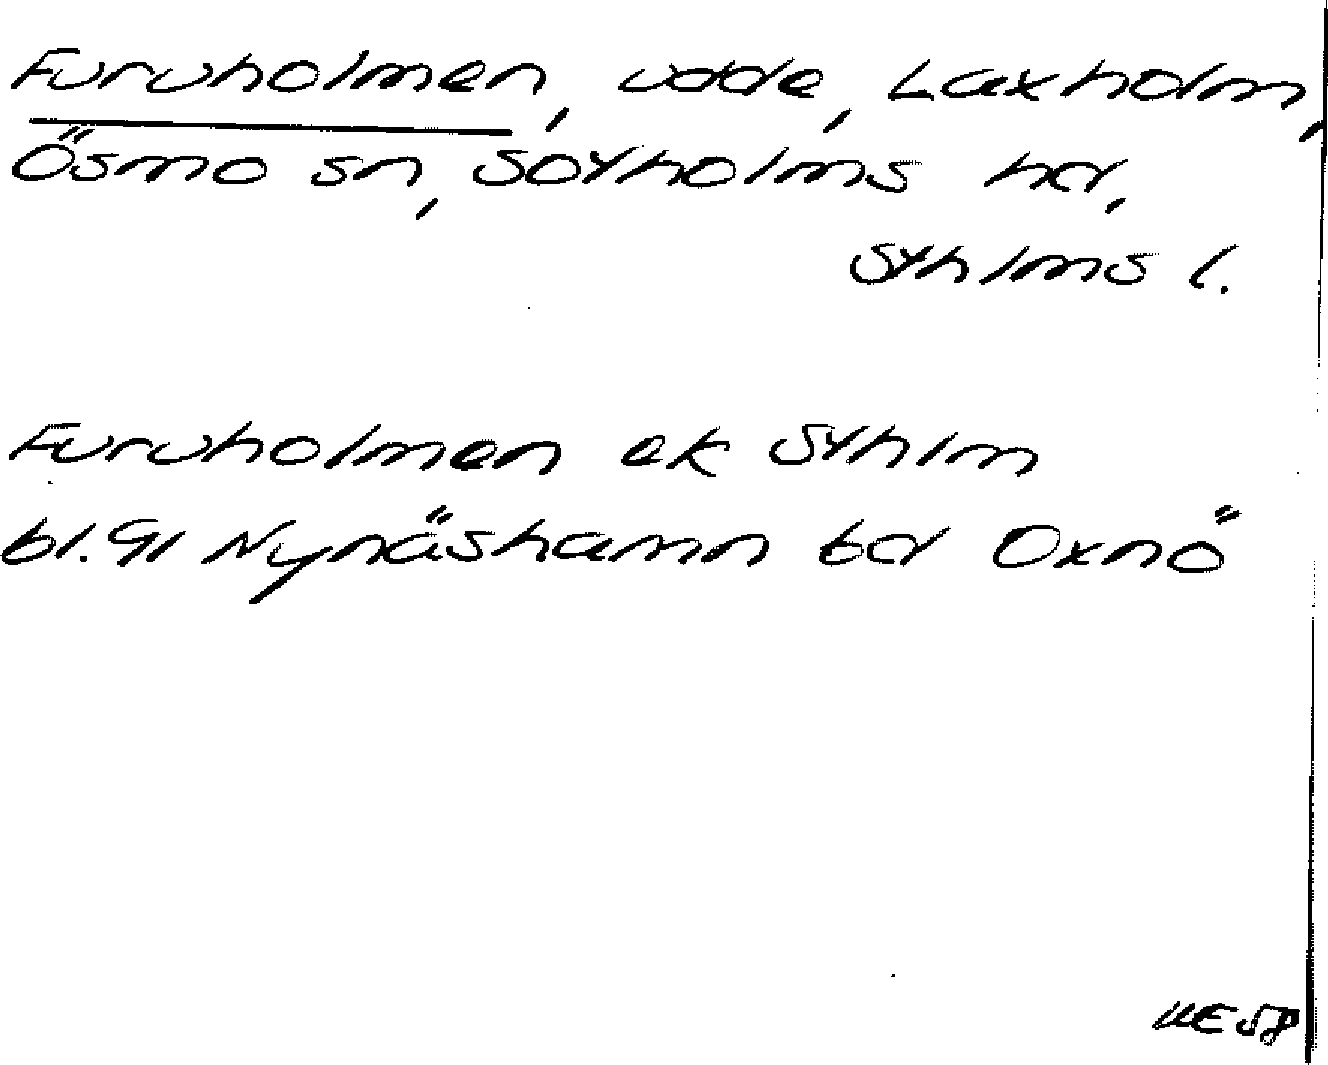 Furuholmen, udde, Laxholm,
Ösmo sn, Sotholms hd,
Sthlms l.
Furuholmen ek Sthlm
bl. 91 Nynäshamn td Oxnö
UE 58